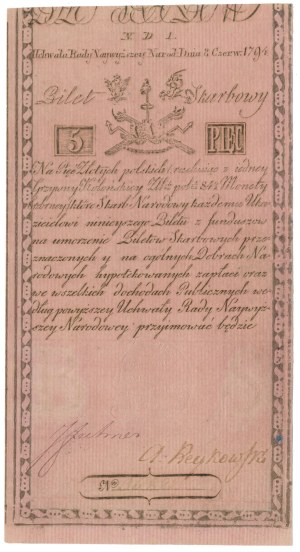 N D 1.
Uchwała Rady Naywyższey Narod: Dnia 8. Czerw. 1794
Bilet Skarbowy
5 PIĘĆ
Na Pięć Złotych polskich rachuiąc z iedney
Grzywny Kolońskiey Złt: pol: 84½ Monety
obrączkowey Skarb Narodowy każdemu Oka-
zicielowi ninieyszego Biletu z funduszow
na umorzenie Biletow Skarbowych prze-
znaczonych y na ogolnych Dobrach Na-
rodowych hypotekowanych zapłaci oraz
we wszelkich dochodach Publicznych we-
dług powyższey Uchwały Rady Naywyż-
szey Narodowey przyimować będzie
A. Reykowski